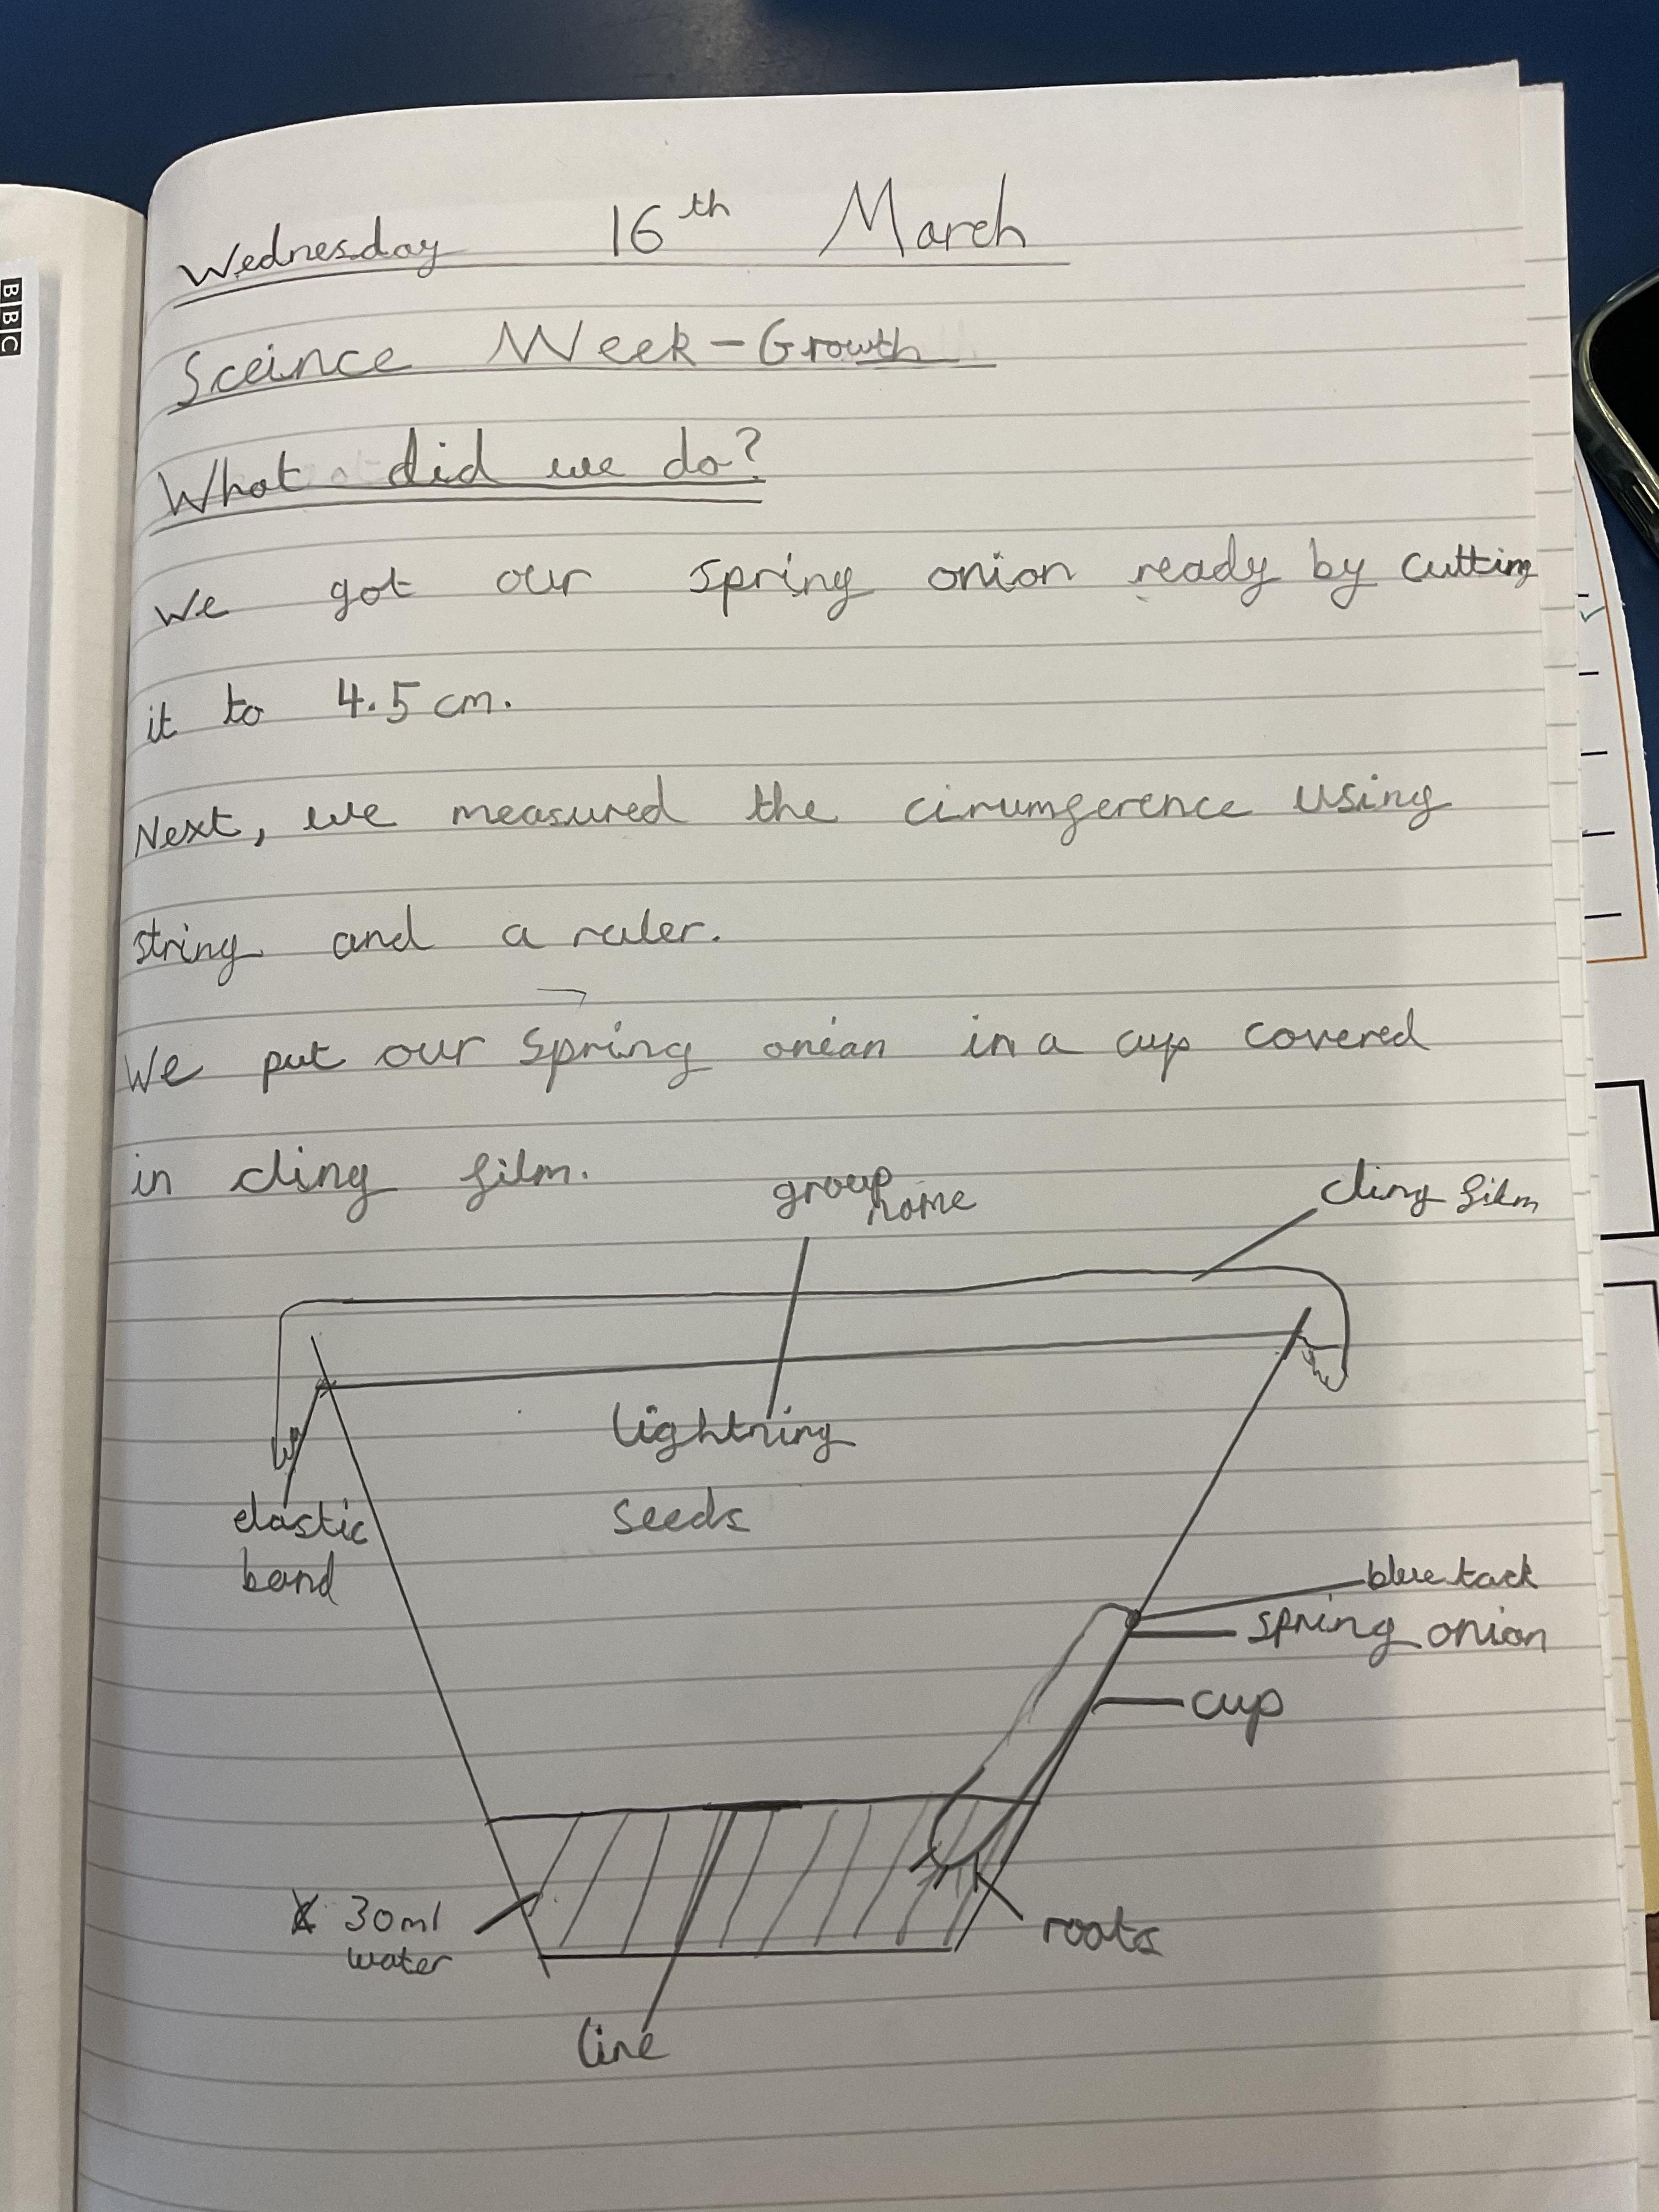 BBC
Wednesday 16th March
Sceince Week - Growth
What did we do?
We got our spring onion ready by cutting
it to 4.5cm.
Next, we measured the cirumference using
string and a ruler.
We put our spring onion in a cup covered
in cling film.
group name
cling film
lightning
seeds
elastic
band
blue tack
spring onion
cup
30ml
water
roots
line